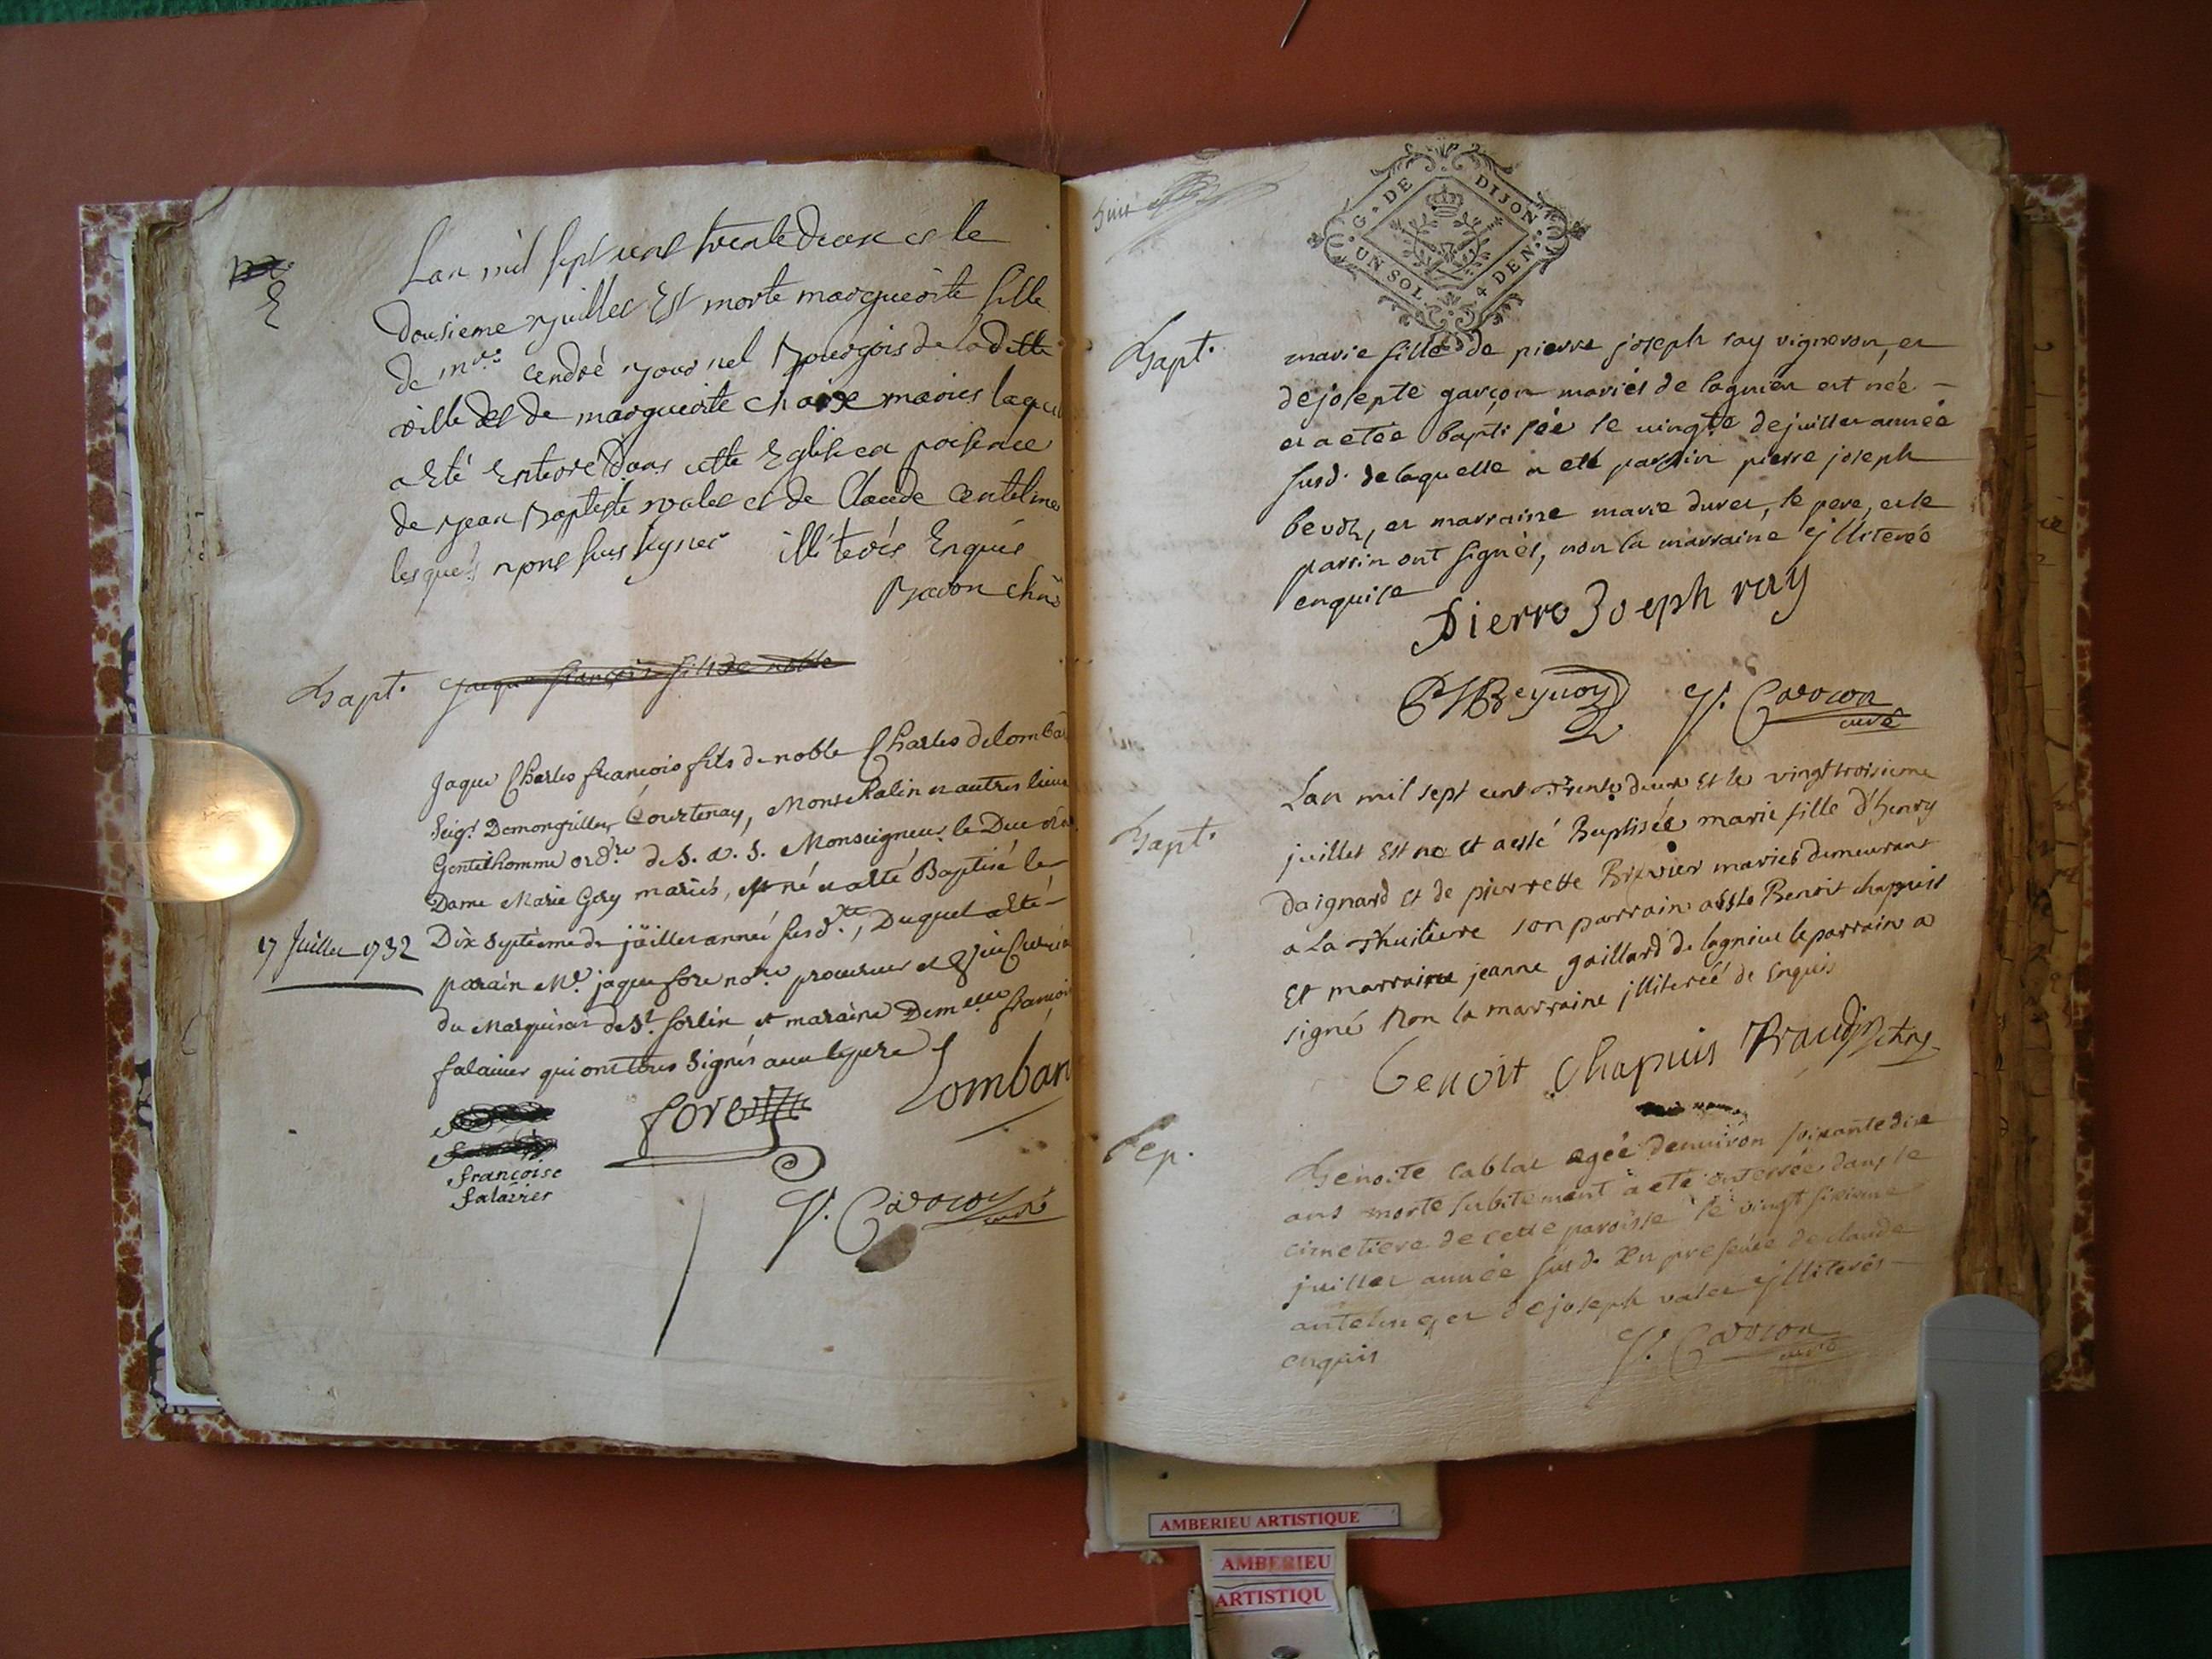 E
Lan mil sept cent trente deux et le
dousieme juillet Est morte marguerite fille
de mre. André journel Bourgois de la ditte
ville et de marguerite chaixe maries laquel
a Eté Enterré dans cette Eglise en poisence
de jean Baptiste valet et de Claude Antelme
lesquels nont sus signer illiterés Enquis
Bapt. jaque françois fils de noble
Jaque Charles francois fils de noble Charles de lomba
Seigr. Courtenay, Mont Ralin et autres lieux
Gentilhomme ordre de S. A. S. Monseigneur le Duc
Dame Marie Gery mariés, est né et a eté Baptisé le
17 Juillet 1732
Dix septieme de juillet année susdte., Duquel a eté
parain Me. jaque fore nore. procureur
du Marquisat de St. Sorlin et maraine Demelle françoi
falaivier qui ont tous Signés avec le pere
fore
Lomban
françoise
falaivier
C G
DE DIJON
UN SOL
4 DEN.
Bapt.
marie fille de pierre joseph ray vigneron, et
de josepte garçon mariés de lagnieu est née
et a etée baptisée le vingt de juillet année
susd. de laquelle a eté parrin pierre joseph
et marraine marie duret, le pere, et le
parrin ont signés, non la marraine illiterée
enquise
Pierre Joseph ray
curé
Bapt.
Lan mil sept cent Trente deux Et le vingttroisieme
juillet Est né et a esté Baptisée marie fille d'henry
Daignard et de pierrette mariés demeurant
a La Thuiliere son parrain a esté Benoit chappuis
Et marraine jeanne gaillard de lagnieu le parrain a
signé Non la marraine illiterée de Enquis
Benoit Chapuis
Sep.
Benoite cablat agée denuiron soixante dix
ans morte subitement a eté enterrée dans le
cimetiere de cette paroisse le vingt sixieme
juillet année susd. En presence de claude
antelme et de joseph valet illiterés
enquis
curé
AMBERIEU ARTISTIQUE
AMBERIEU
ARTISTIQU